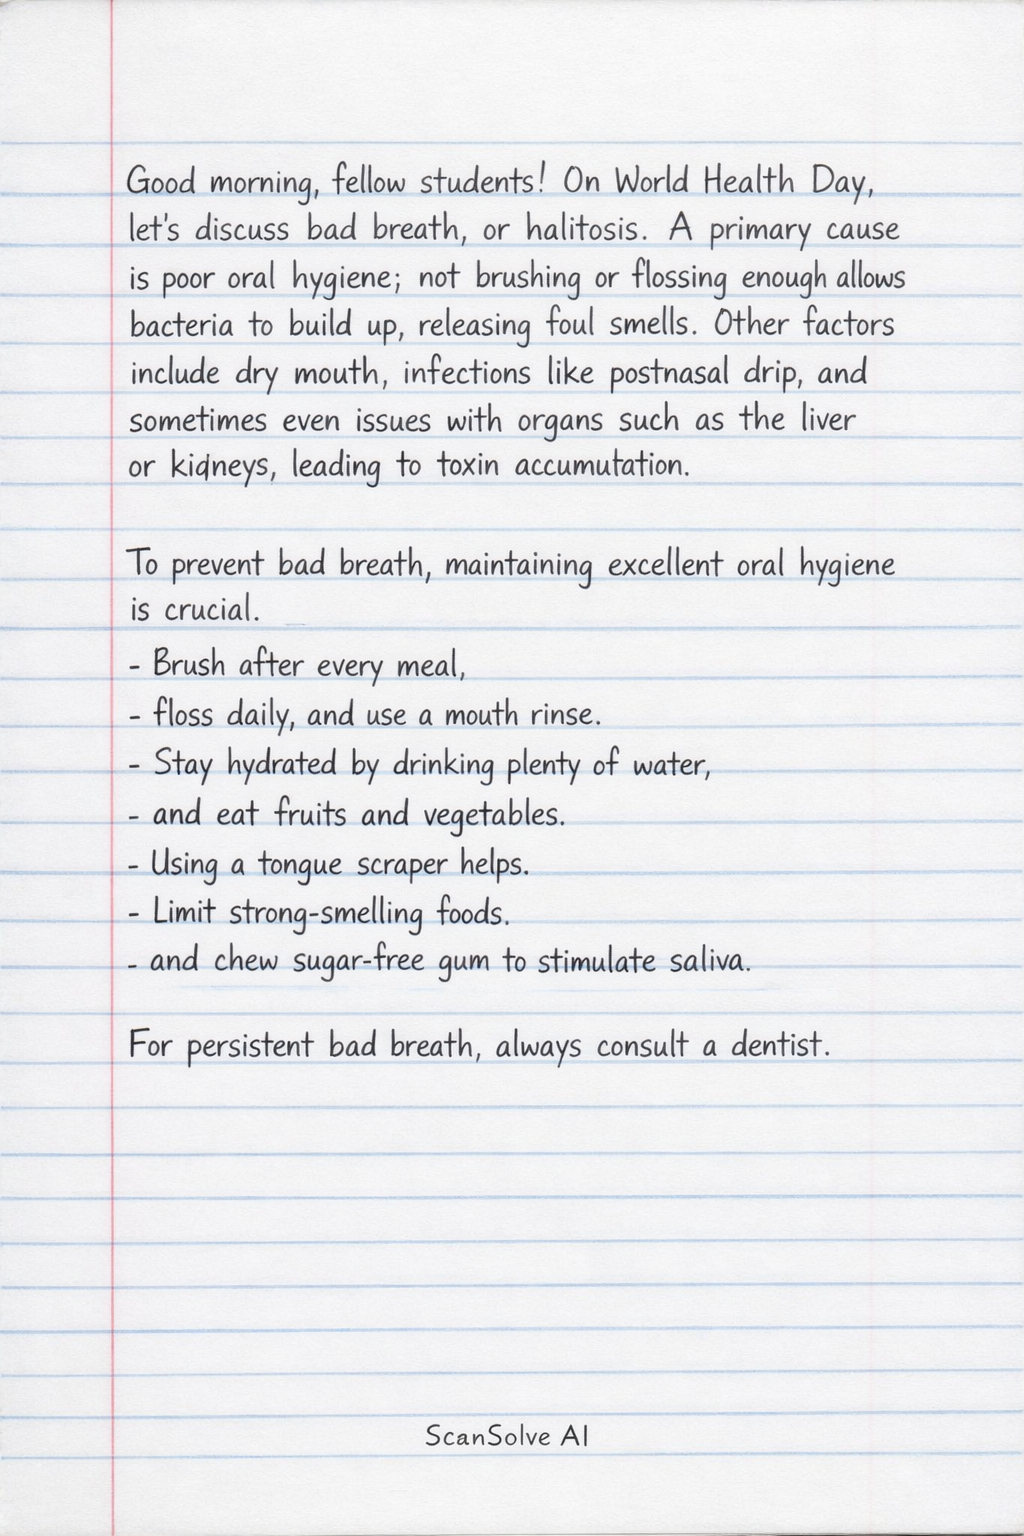 Good morning, fellow students! On World Health Day,
let's discuss bad breath, or halitosis. A primary cause
is poor oral hygiene; not brushing or flossing enough allows
bacteria to build up, releasing foul smells. Other factors
include dry mouth, infections like postnasal drip, and
sometimes even issues with organs such as the liver
or kidneys, leading to toxin accumutation.
To prevent bad breath, maintaining excellent oral hygiene
is crucial.
- Brush after every meal,
- floss daily, and use a mouth rinse.
- Stay hydrated by drinking plenty of water,
- and eat fruits and vegetables.
- Using a tongue scraper helps.
- Limit strong-smelling foods.
- and chew sugar-free gum to stimulate saliva.
For persistent bad breath, always consult a dentist.
ScanSolve AI